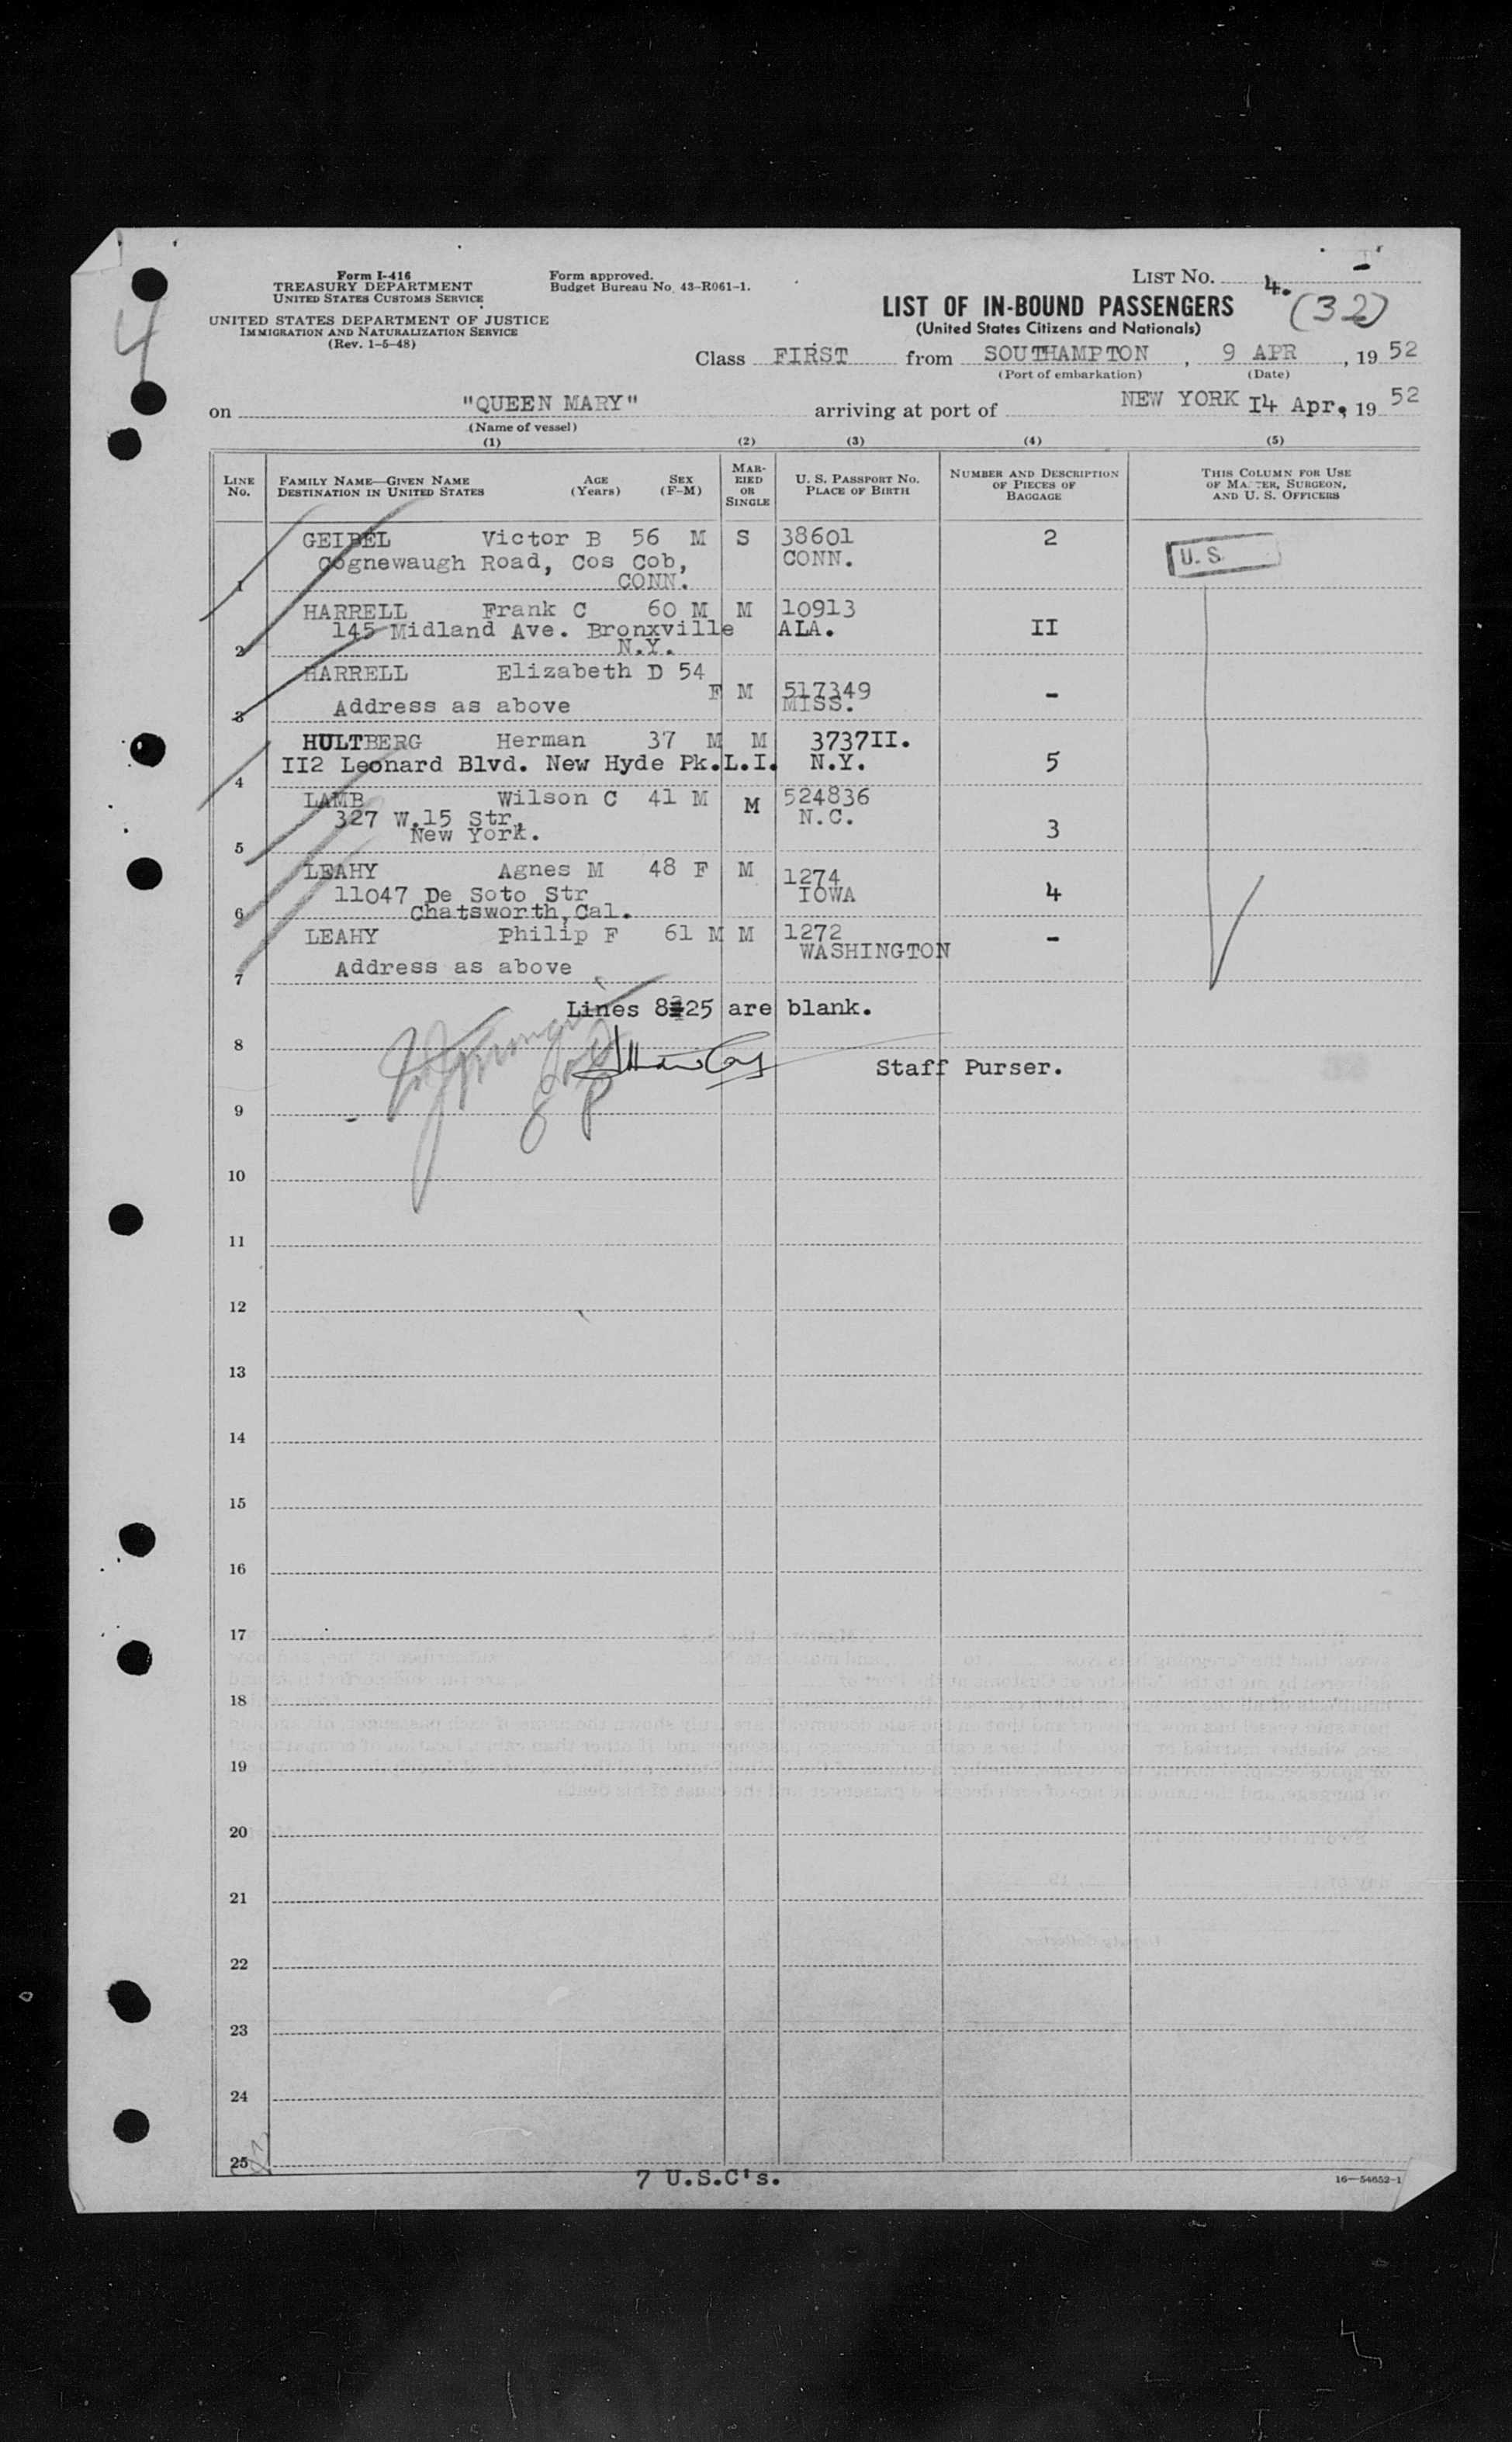 Form I-416
TREASURY DEPARTMENT
UNITED STATES CUSTOMS SERVICE
UNITED STATES DEPARTMENT OF JUSTICE
IMMIGRATION AND NATURALIZATION SERVICE
(Rev. 1-5-48)
Form approved.
Budget Bureau No. 43-R061-1.
LIST NO. 4.
(32)
4
LIST OF IN-BOUND PASSENGERS
(United States Citizens and Nationals)
Class FIRST from SOUTHAMPTON, 9 APR, 1952
(Port of embarkation) (Date)
on "QUEEN MARY" arriving at port of NEW YORK I4 Apr, 1952
(Name of vessel)
(1) (2) (3) (4) (5)
LINE No.
FAMILY NAME—GIVEN NAME
DESTINATION IN UNITED STATES
AGE (Years)
SEX (F-M)
MARRIED OR SINGLE
U. S. PASSPORT NO.
PLACE OF BIRTH
NUMBER AND DESCRIPTION OF PIECES OF BAGGAGE
THIS COLUMN FOR USE OF MASTER, SURGEON, AND U. S. OFFICERS
GEIBEL Victor B 56 M S 38601 2
Cognewaugh Road, Cos Cob, CONN.
CONN.
U.S.
1
HARRELL Frank C 60 M M 10913
145 Midland Ave. Bronxville ALA. II
N.Y.
2
HARRELL Elizabeth D 54
F M 517349 -
MISS.
Address as above
3
HULTBERG Herman 37 M M 3737II.
II2 Leonard Blvd. New Hyde Pk.L.I. N.Y. 5
4
LAMB Wilson C 41 M M 524836
327 W.15 Str, N.C.
New York. 3
5
LEAHY Agnes M 48 F M 1274
11047 De Soto Str IOWA 4
Chatsworth, Cal.
6
LEAHY Philip F 61 M M 1272 -
WASHINGTON
Address as above
7
Lines 8-25 are blank.
8
Staff Purser.
9
10
11
12
13
14
15
16
17
18
19
20
21
22
23
24
25
7 U.S.C's.
16—54652-1